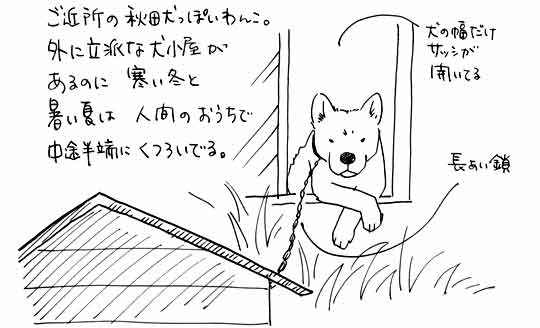 ご近所の秋田犬っぽいわんこ。
外に立派な犬小屋が
あるのに 寒い冬と
暑い夏は 人間のおうちで
中途半端にくつろいでる。
犬の幅だけ
サッシが
開いてる
長ぁい鎖